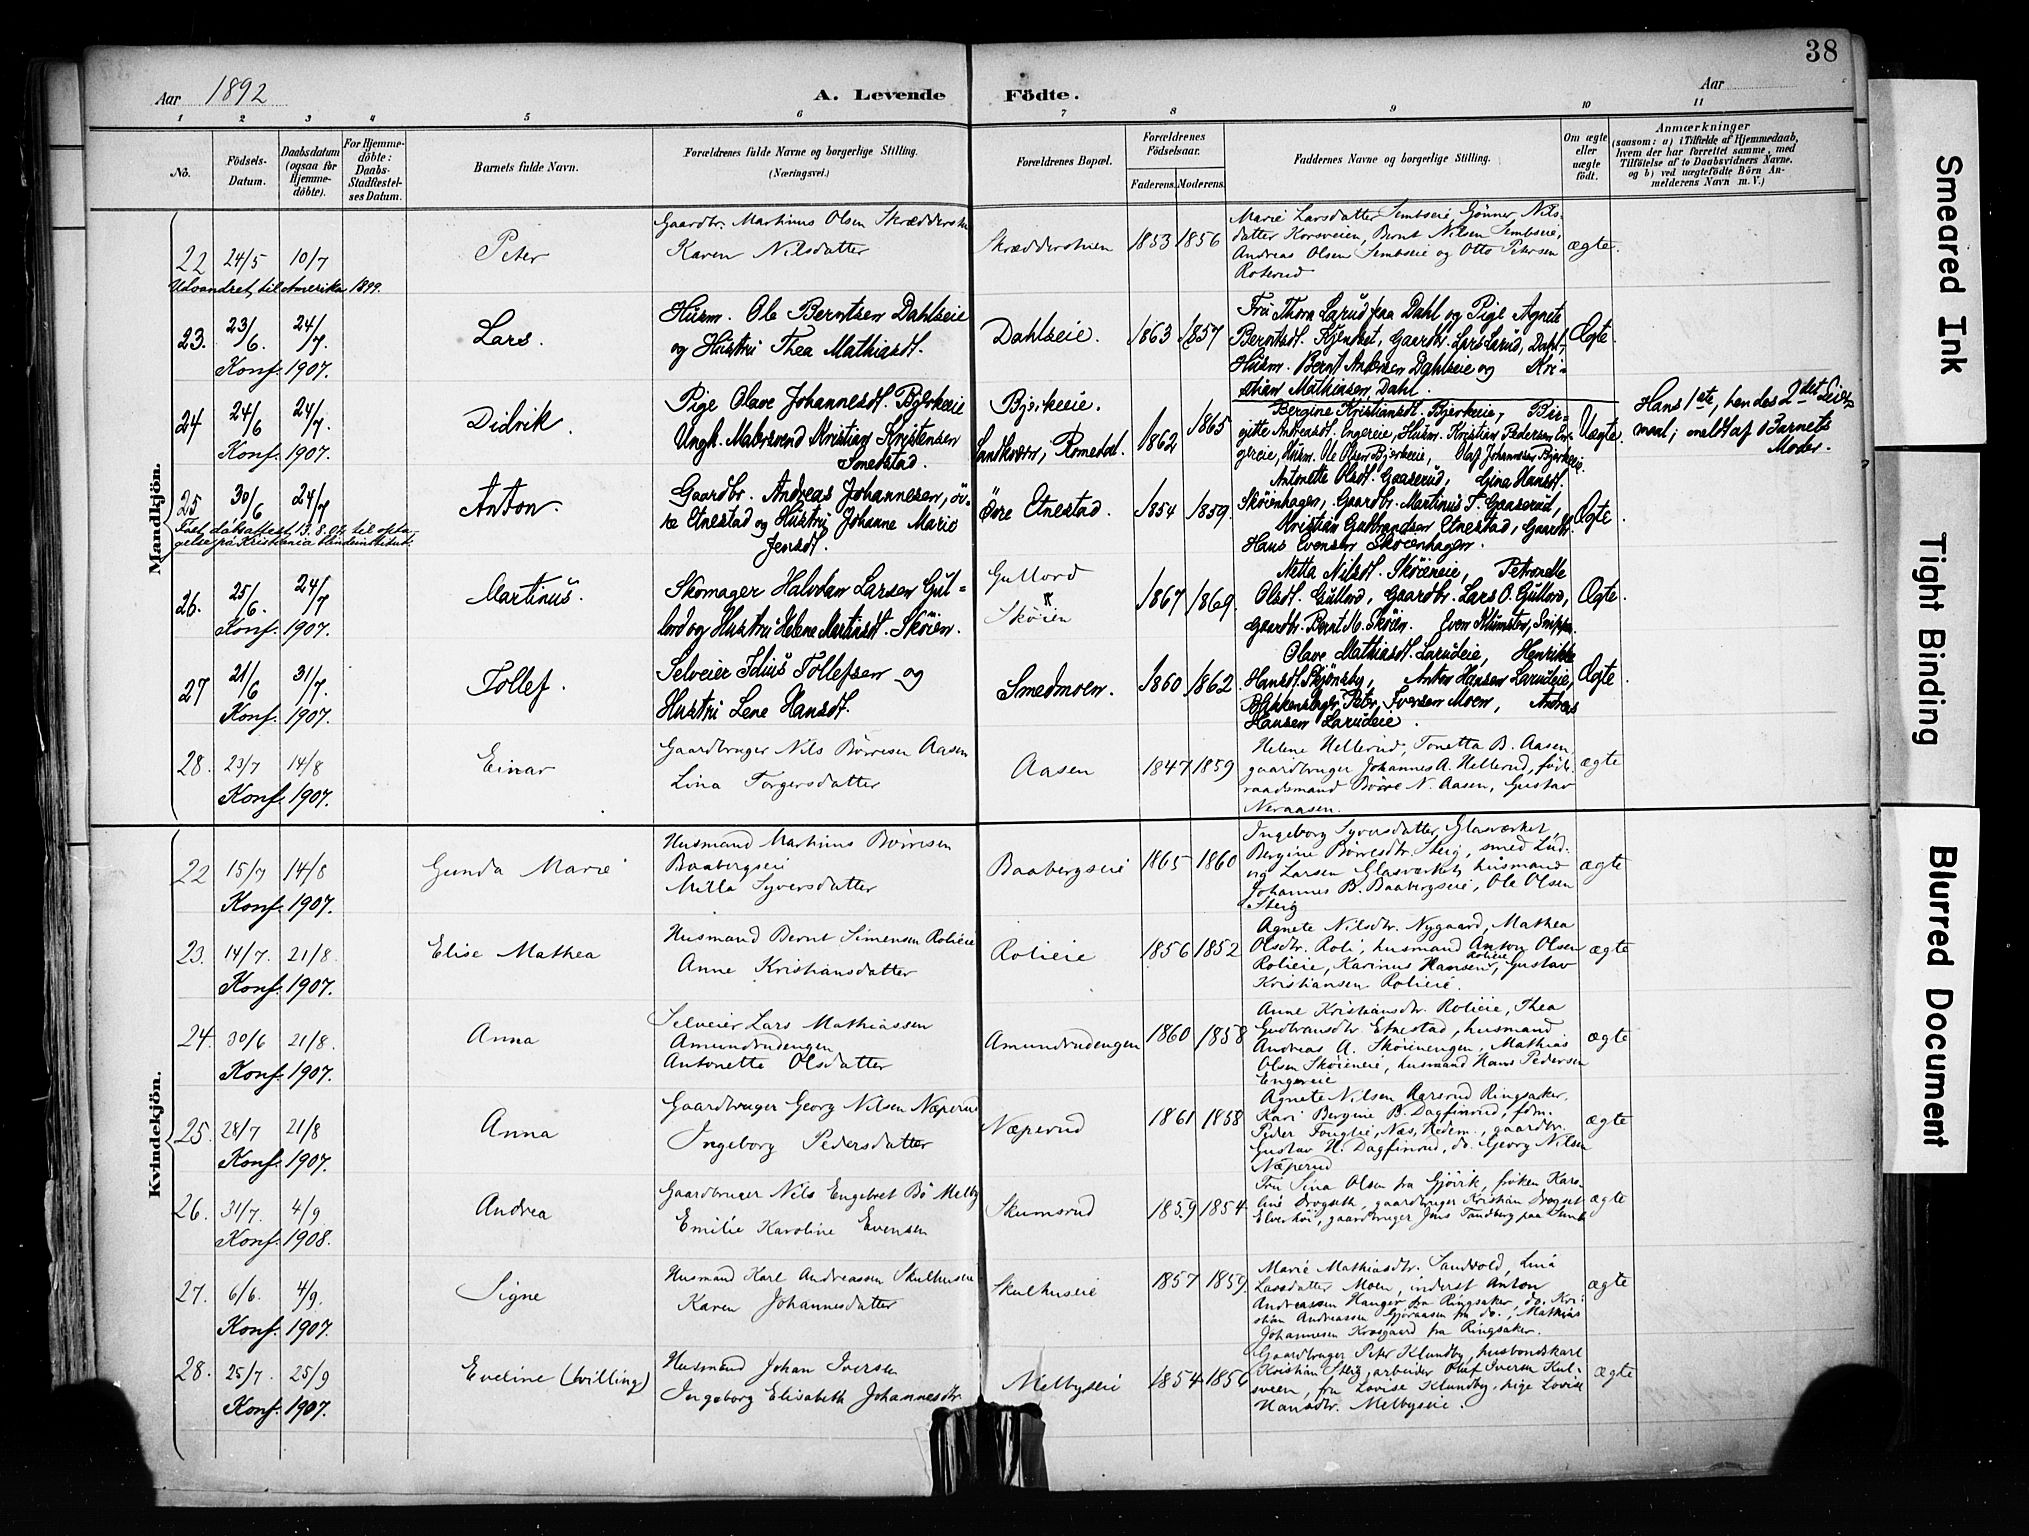 38
Aar 1892
A. Levende Födte.
Aar
1 2 3 4 5 6 7 8 9 10 11
No.
Födsels-Datum.
Daabsdatum (ogsaa for Hjemme-döbte).
For Hjemme-döbte: Daabs-Stadfæstel-ses Datum.
Barnets fulde Navn.
Forældrenes fulde Navne og borgerlige Stilling.
(Næringsvei.)
Forældrenes Bopæl.
Forældrenes Födselsaar.
Faderens. Moderens.
Faddernes Navne og borgerlige Stilling.
Om ægte eller uægte födt.
Anmærkninger
(saasom: a) i Tilfælde af Hjemmedaab, hvem der har forrettet samme, med Tilföielse af to Daabsvidners Navne. og b) ved uægtefödte Börn An-melderens Navn m. V.)
Mandkjön.
22 24/5 10/7 Peter
Gaardbr. Martinus Olsen Skrædderstuen
Karen Nilsdatter
Skrædderstuen 1853 1856
Marie Larsdatter Sembseie, Gunner Nils-
datter Korsveien, Bernt Nilsen Sembseie,
Andreas Olsen Sembseie og Otto Petersen
Roterud
ægte.
Udvandret til Amerika 1899.
23. 23/6. 24/7. Lars.
Konf. 1907.
Husm. Ole Berntsen Dahlseie
og Hustru Thea Mathiasdt.
Dahlseie. 1863 1857
Fru Thora Larud paa Dahl og Pige Agnete
Berntsdt. Kjendset, Gaardbr. Lars Larud, Dahl,
Husm. Bernt Andersen Dahlseie og Kri-
stian Mathiasen Dahl.
Ægte.
24 24/6 24/7. Didrik.
Konf. 1907.
Pige Olave Johannesdt. Bjerkeeie
Ungk. Malersvend Kristian Kristensen
Smedstad.
Bjerkeeie.
Landkvern, Romedal. 1862 1865
Bergine Kristiansdt. Bjerkeeie, Bir-
gitte Andreasdt. Engereie, Husm. Kristian Pedersen En-
gereie, Husm. Ole Olsen Bjerkeeie, Olaf Johannesen Bjerkeeie.
Uægte.
Hans 1ste, hendes 2det Leier-
maal; meldt af Barnets
Moder.
25 30/6 24/7 Anton.
Gaardbr. Andreas Johannesen, öv-
re Etnestad og Hustru Johanne Marie
Jensdt.
Övre Etnestad. 1854 1859.
Antonette Olsdt. Gaaserud, Gina Hansdt.
Skøienhagen, Gaardbr. Martinus T. Gaaserud,
Kristian Gulbrandsen Etnestad, Gaardbr.
Hans Evensen Skøienhagen.
Ægte.
26. 25/6. 24/7 Martinus.
Konf. 1907.
Skomager Halvdan Larsen Gul-
lord og Hustru Helene Martinsdt. Skøien.
Gullord
Skøien 1867 1869.
Netta Nilsdt. Skøieneie, Petronelle
Olsdt. Gullord, Gaardbr. Lars O. Gullord,
Gaardbr. Bernt M. Skøien.
Ægte.
27 21/6 31/7. Tollef.
Konf. 1907.
Selveier Julius Tollefsen og
Hustru Lene Hansdt.
Smedmoen. 1860 1862
Olave Mathiasdt. Larudeie, Henrikke
Hansdt. Skjönsby, Anton Hansen Larudeie,
Blikkenslager Peter Iversen Moen, Andreas
Hansen Larudeie.
Ægte.
28. 23/7 14/8 Einar
Konf. 1907.
Gaardbruger Nils Børresen Aasen
Lina Torgersdatter
Aasen 1847 1859
Helene Hellerud, Tonetta B. Aasen,
gaardbruger Johannes A. Hellerud, føde-
raadsmand Børre N. Aasen, Gustav
Neraasen.
ægte
Kvindekjön.
22 15/7 14/8 Gunda Marie
Konf. 1907.
Husmand Martinus Børresen
Baabergseie
Milla Syversdatter
Baabergseie 1865 1860
Ingeborg Syversdatter Glasværket,
Bergine Børresdtr. Steig, smed Lud-
vig Larsen Glasværket, husmand
Johannes B. Baabergseie, Ole Olsen
Steig
ægte
23. 14/7. 21/8. Elise Mathea
Konf. 1907.
Husmand Bernt Simensen Rolieie
Anne Kristiansdatter
Rolieie 1856 1852
Agnete Nilsdtr. Nygaard, Mathea
Olsdtr. Roli, husmand Anton Olsen
Rolieie, Karinus Hansen Rolieie, Gustav
Kristiansen Rolieie.
ægte
24. 30/6 21/8. Anna
Konf. 1907.
Selveier Lars Mathiassen
Amundrudengen
Antonette Olsdatter
Amundrudengen 1860 1858
Anne Kristiansdtr. Rolieie, Thea
Gudbransdtr. Etnestad, husmand
Andreas A. Skøienengen, Mathias
Olsen Skøieneie, husmand Hans Pedersen
Engereie
ægte
25. 28/7 21/8 Anna
Konf. 1907.
Gaardbruger Georg Nilsen Næperud
Ingeborg Pedersdatter
Næperud 1861 1858
Agnete Nilsen Aasrud Ringsaker.
Kari Bergine B. Dagfinrud, fdm.
Peder Fouglie, Næs, Hedem., gaardbr.
Gustav H. Dagfinrud, do. Georg Nilsen
Næperud
ægte
26. 31/7. 4/9 Andrea
Konf. 1908.
Gaardbruger Nils Engebret Bø Melby
Emilie Karoline Evensen
Skumsrud 1859 1854
Fru Lina Olsen fra Gjøvik, frøken Karo-
line Drogseth, gaardbruger Kristian Drogset
Elverhøi, gaardbruger Jens Tandberg paa Sund
ægte
27. 6/6. 4/9. Signe
Konf. 1907.
Husmand Karl Andreassen Skulhuseie
Karen Johannesdatter
Skulhuseie 1857 1859.
Marie Mathiasdtr. Sandvold, Lina
Larsdatter Moen, inderst Anton
Andreassen Hanger fra Ringsaker, do. Kri-
stian Andreassen Gjøraasen fra do., Mathias
Johannesen Krosgaard fra Ringsaker.
ægte
28. 25/7. 25/9 Eveline (tvilling)
Konf. 1907.
Husmand Johan Iversen
Ingeborg Elisabeth Johannesdtr.
Melbyseie 1854 1856
Gaardbruger Peter Klundby, husbondskarl
Kristian Steig, arbeider Olaf Iversen Kul-
sveen, fru Lovise Klundby, pige Lovise
Hansdtr. Melbyseie.
ægte
Smeared Ink
Tight Binding
Blurred Document